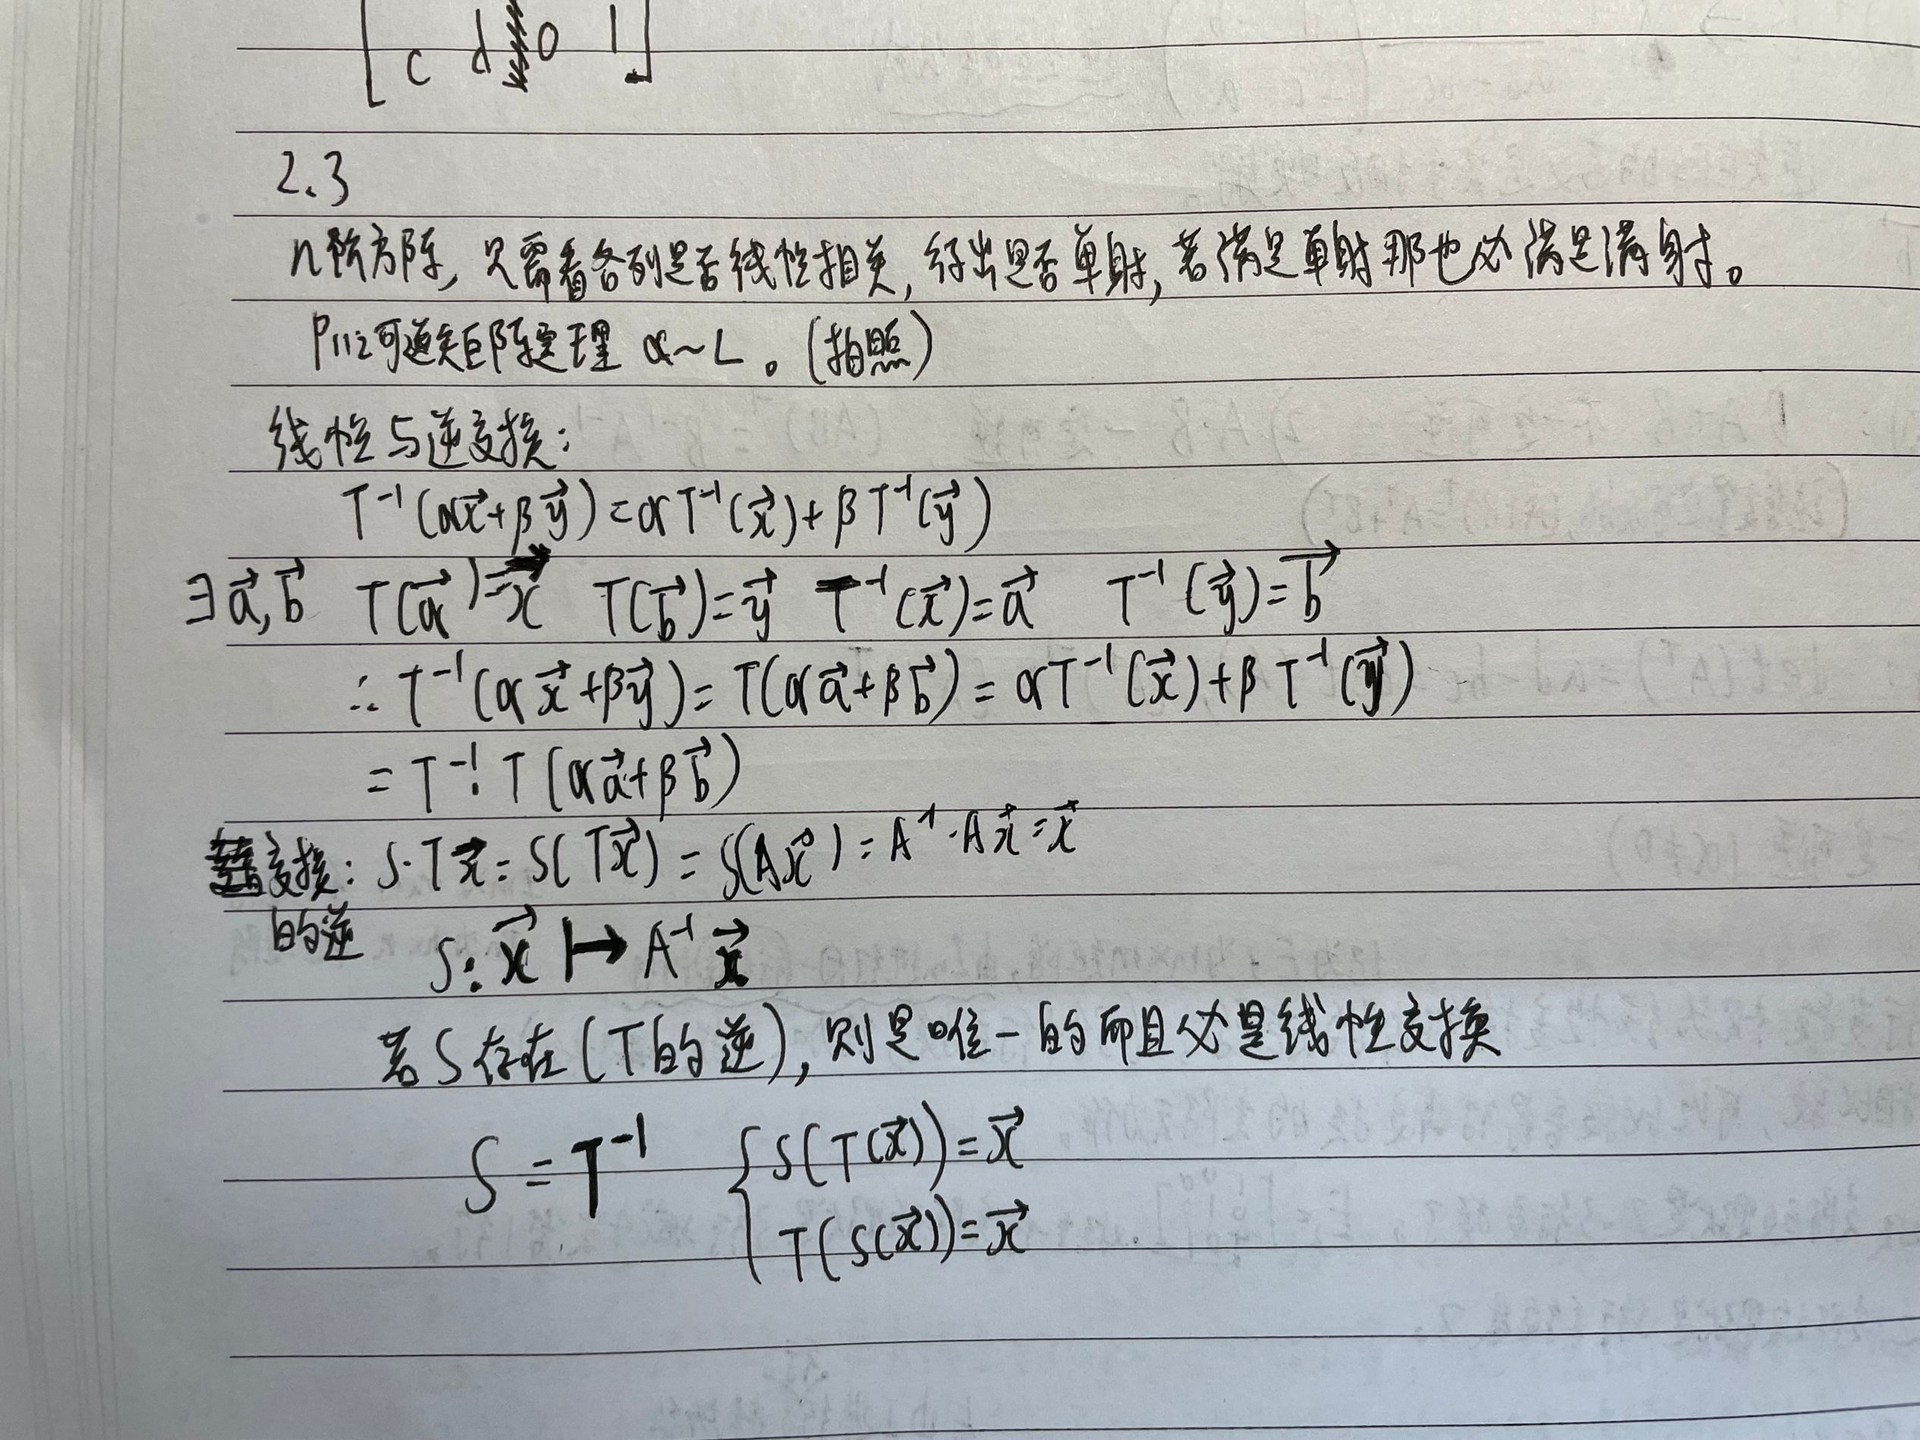 c d 0 1
2.3
n阶方阵,只需看各列是否线性相关,得出是否单射,若满足单射那也必满足满射。
P112可逆矩阵定理 a~L。(拍照)
线性与逆变换:
T⁻¹(αx⃗+βy⃗)=αT⁻¹(x⃗)+βT⁻¹(y⃗)
∃a⃗,b⃗ T(a⃗)=x⃗ T(b⃗)=y⃗ T⁻¹(x⃗)=a⃗ T⁻¹(y⃗)=b⃗
∴T⁻¹(αx⃗+βy⃗)=T(αa⃗+βb⃗)=αT⁻¹(x⃗)+βT⁻¹(y⃗)
=T⁻¹·T(αa⃗+βb⃗)
变换: S·Tx⃗=S(Tx⃗)=S(Ax⃗)=A⁻¹·Ax⃗=x⃗
的逆 S:x⃗↦A⁻¹x⃗
若S存在(T的逆),则是唯一的而且必是线性变换
S=T⁻¹ { S(T(x⃗))=x⃗
T(S(x⃗))=x⃗